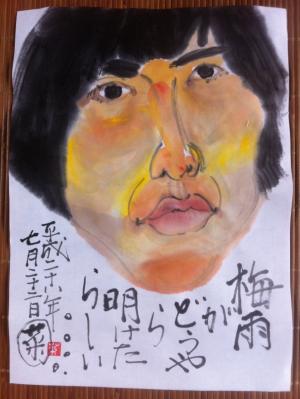 梅雨
が
どうや
ら
明けた
らしい
平成二十六年。。。。
七月二十二日
菜